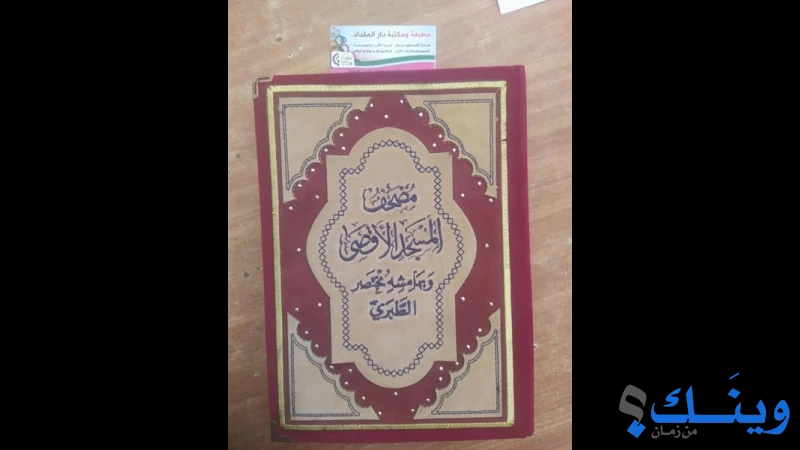 مطبعة ومكتبة دار المقداد
مُصْحَفُ
المَسْجِدِ الأَقْصَى
وَبِهَامِشِهِ مُخْتَصَر
الطَّبَرِيّ
وينَـك؟
من زمـان